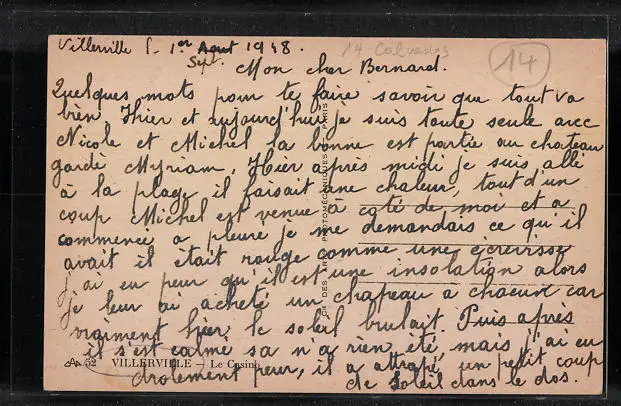 Villerville l. 1er Aout 1948.
14 Calvados
14
Sept.
Mon cher Bernard.
Quelques mots pour te faire savoir que tout va
bien. Hier et aujourd'hui je suis toute seule avec
Nicole et Michel la bonne est partie au chateau
garde Myriam. Hier après midi je suis allé
à la plage il faisait une chaleur, tout d'un
coup Michel est venue à coté de moi et a
commencé a pleure je me demandais ce qu'il
avait il était rouge comme une écrevisse
j'ai eu peur qu'il est une insolation alors
je leur ai acheté un chapeau a chacune car
vraiment hier le soleil brulait. Puis après
il s'est calmé sa n'a rien été mais j'ai eu
drolement peur, il a attrapé un petit coup
de soleil dans le dos.
52 VILLERVILLE — Le Casino
Cie DES ARTS PHOTOMÉCANIQUES PARIS